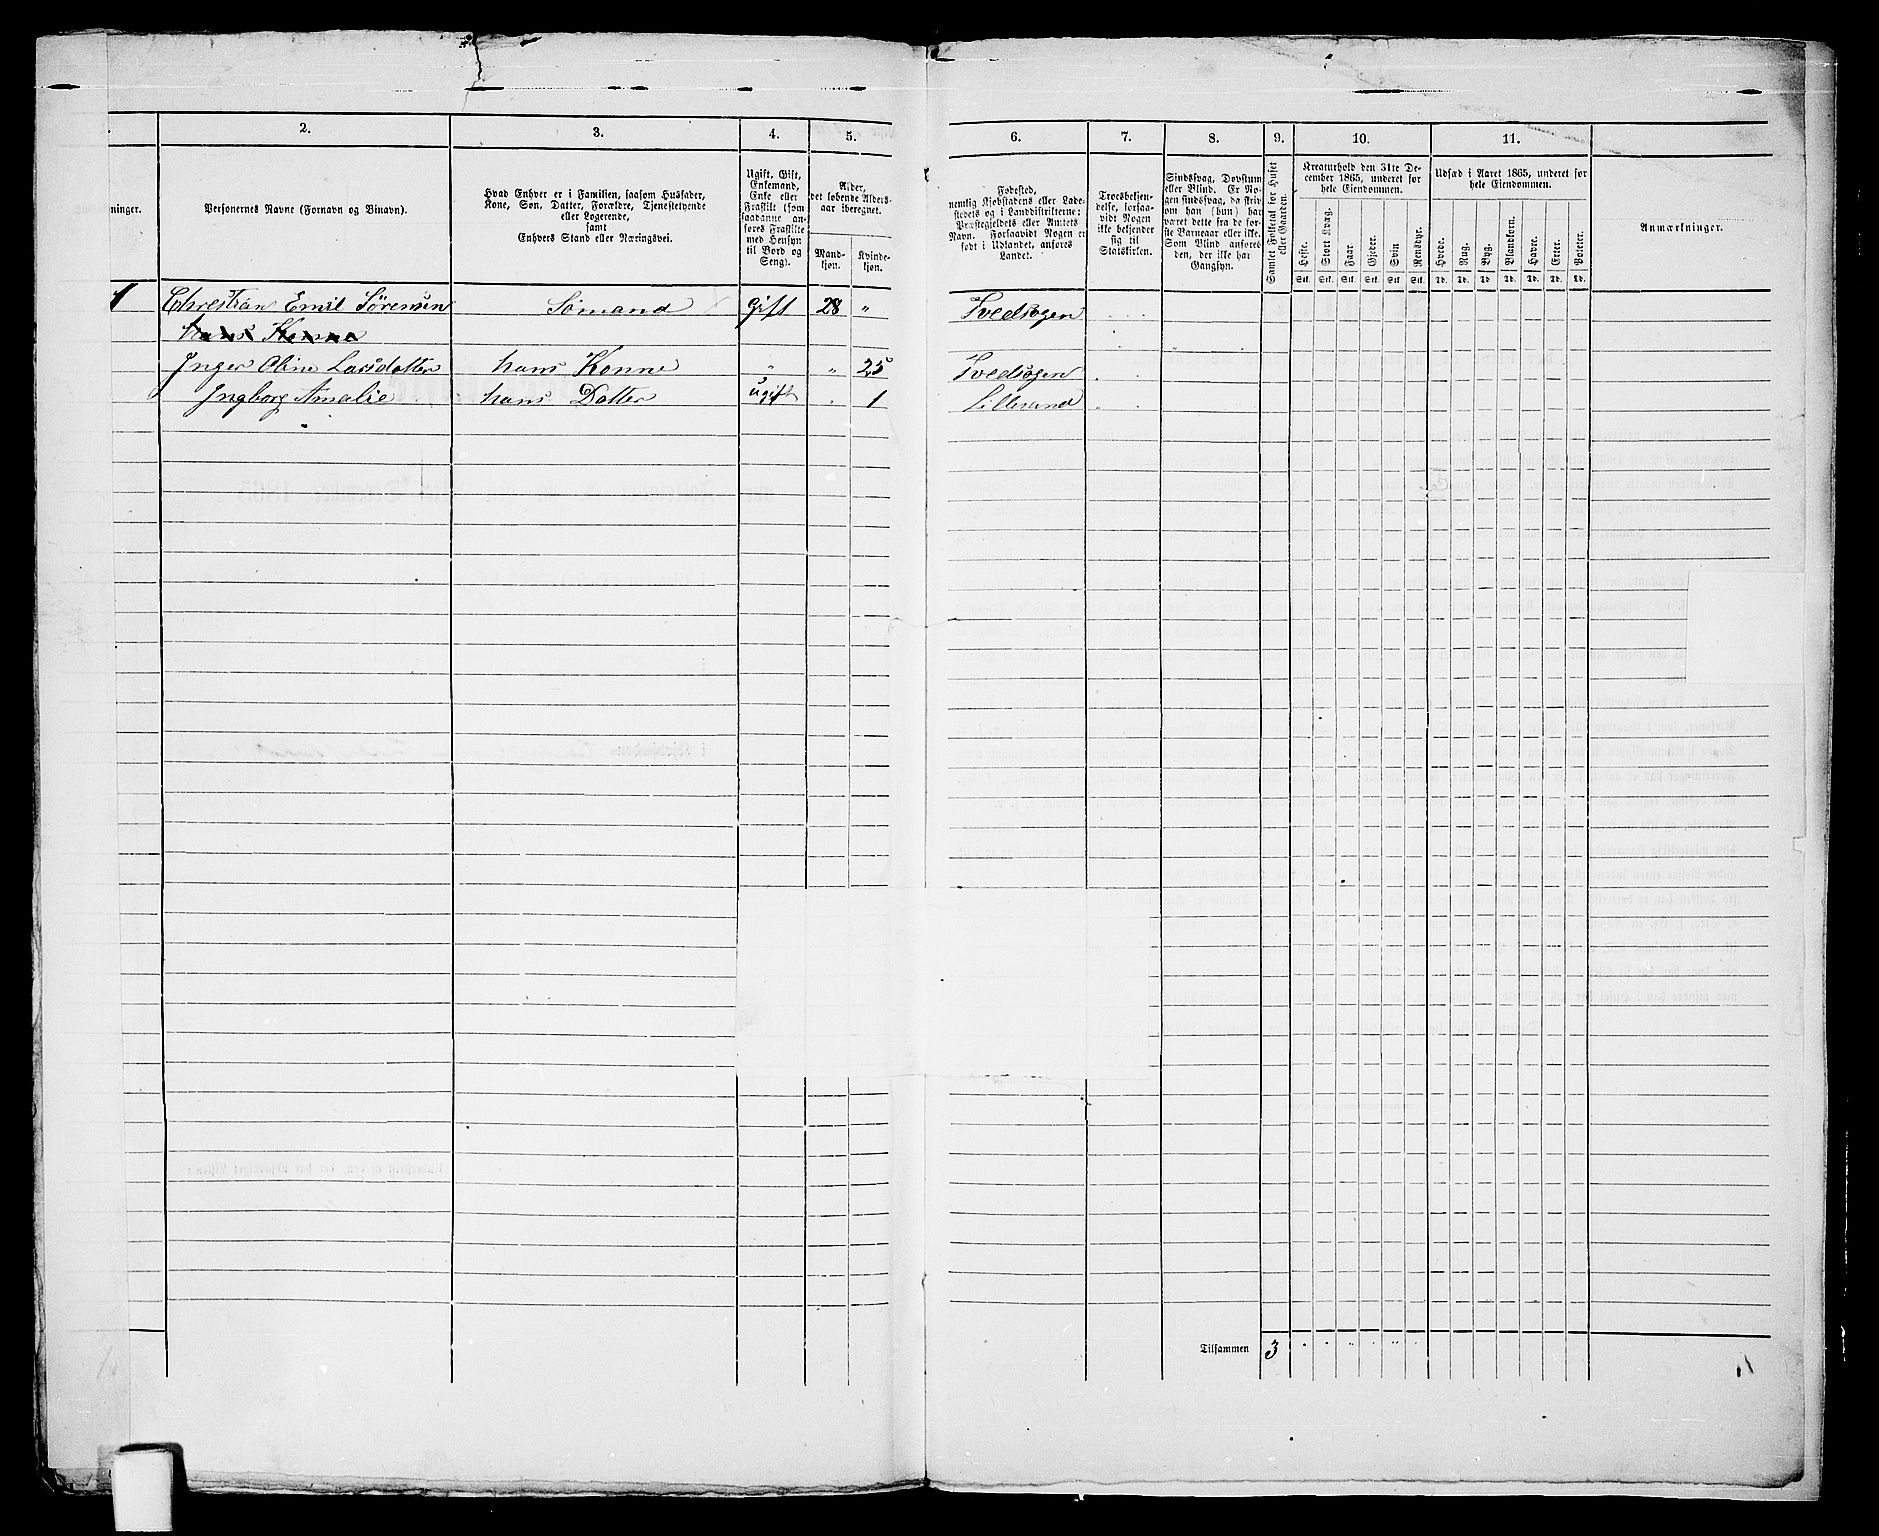 2. 3. 4. 5. 6. 7. 8. 9. 10. 11.
ninger.
Personernes Navne (Fornavn og Binavn).
Hvad Enhver er i Familien, saasom Husfader,
Kone, Søn, Datter, Forældre, Tjenestetyende
eller Logerende,
samt
Enhvers Stand eller Næringsvei.
Ugift, Gift,
Enkemand,
Enke eller
Fraskilt (som
saadanne an-
føres Fraskilte
med Hensyn
til Bord og
Seng).
Alder,
det løbende Alders-
aar iberegnet.
Mand-
kjøn.
Kvinde-
kjøn.
Fødested,
nemlig Kjøbstadens eller Lade-
stedets og i Landdistrikterne:
Præstegjeldets eller Amtets
Navn. Forsaavidt Nogen er
født i Udlandet, anføres
Landet.
Troesbekjen-
delse, forsaa-
vidt Nogen
ikke bekjender
sig til
Statskirken.
Sindssvag, Døvstum
eller Blind. Er No-
gen sindssvag, da skriv
om han (hun) har
været dette fra de før-
ste Barneaar eller ikke.
Som Blind anføres
den, der ikke har
Gangsyn.
Samlet Folketal for Huset
eller Gaarden.
Kreaturhold den 31te De-
cember 1865, underet for
hele Eiendommen.
Heste. Stort Kvæg. Faar. Gjeder. Svin Rensdyr.
Stk. Stk. Stk. Stk. Stk Stk.
Udsæd i Aaret 1865, underet for
hele Eiendommen.
Hvede. Rug. Byg. Blandkorn. Havre. Erter. Poteter.
Td. Td. Td. Td. Td. Td. Td.
Anmærkninger.
1 Christian Emil Sørensen Sømand Gift 28 " Tvedsogen
hans Konne
Inger Oline Larsdatter hans Konne " " 25 Tvedsogen
Ingborg Amalie hans Datter ugift . 1 Lillesand
Tilsammen 3